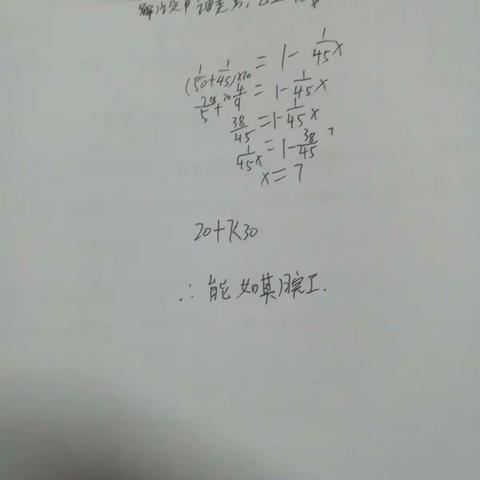 (1/50+1/45)×20 = 1-1/45x
2/5+4/9 = 1-1/45x
38/45 = 1-1/45x
1/45x = 1-38/45
x = 7
20+7<30
∴ 能如期完工.